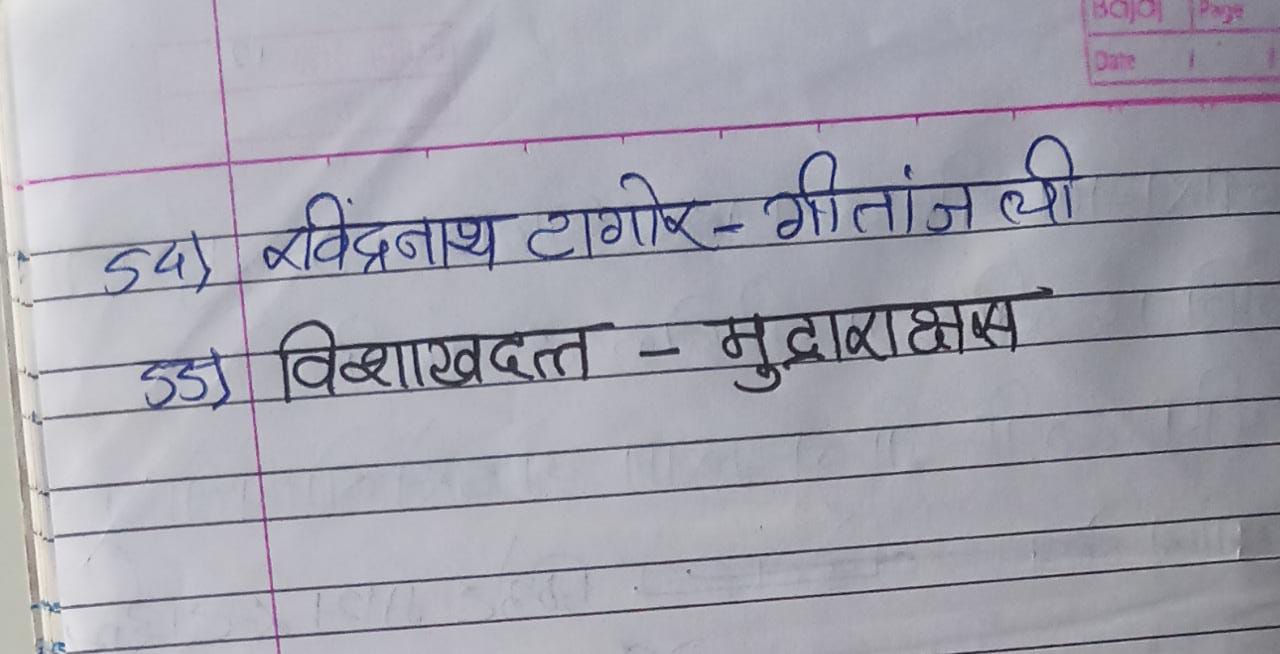 Bajaj Page
Date / /
54) रविंद्रनाथ टागोर - गीतांजली
55) विशाखदत्त - मुद्राराक्षस